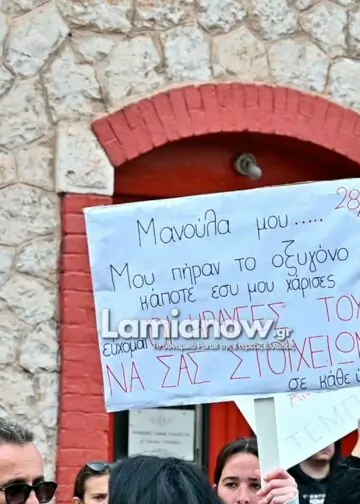 28
Μανούλα μου.....
Μου πήραν το οξυγόνο
κάποτε εσυ μου χάρισες
ευχομαι
ΚΡΑΥΓΕΣ ΤΟΥ
ΝΑ ΣΑΣ ΣΤΟΙΧΕΙΩ
σε κάθε
Lamianow.gr
ΤΕΜΠ